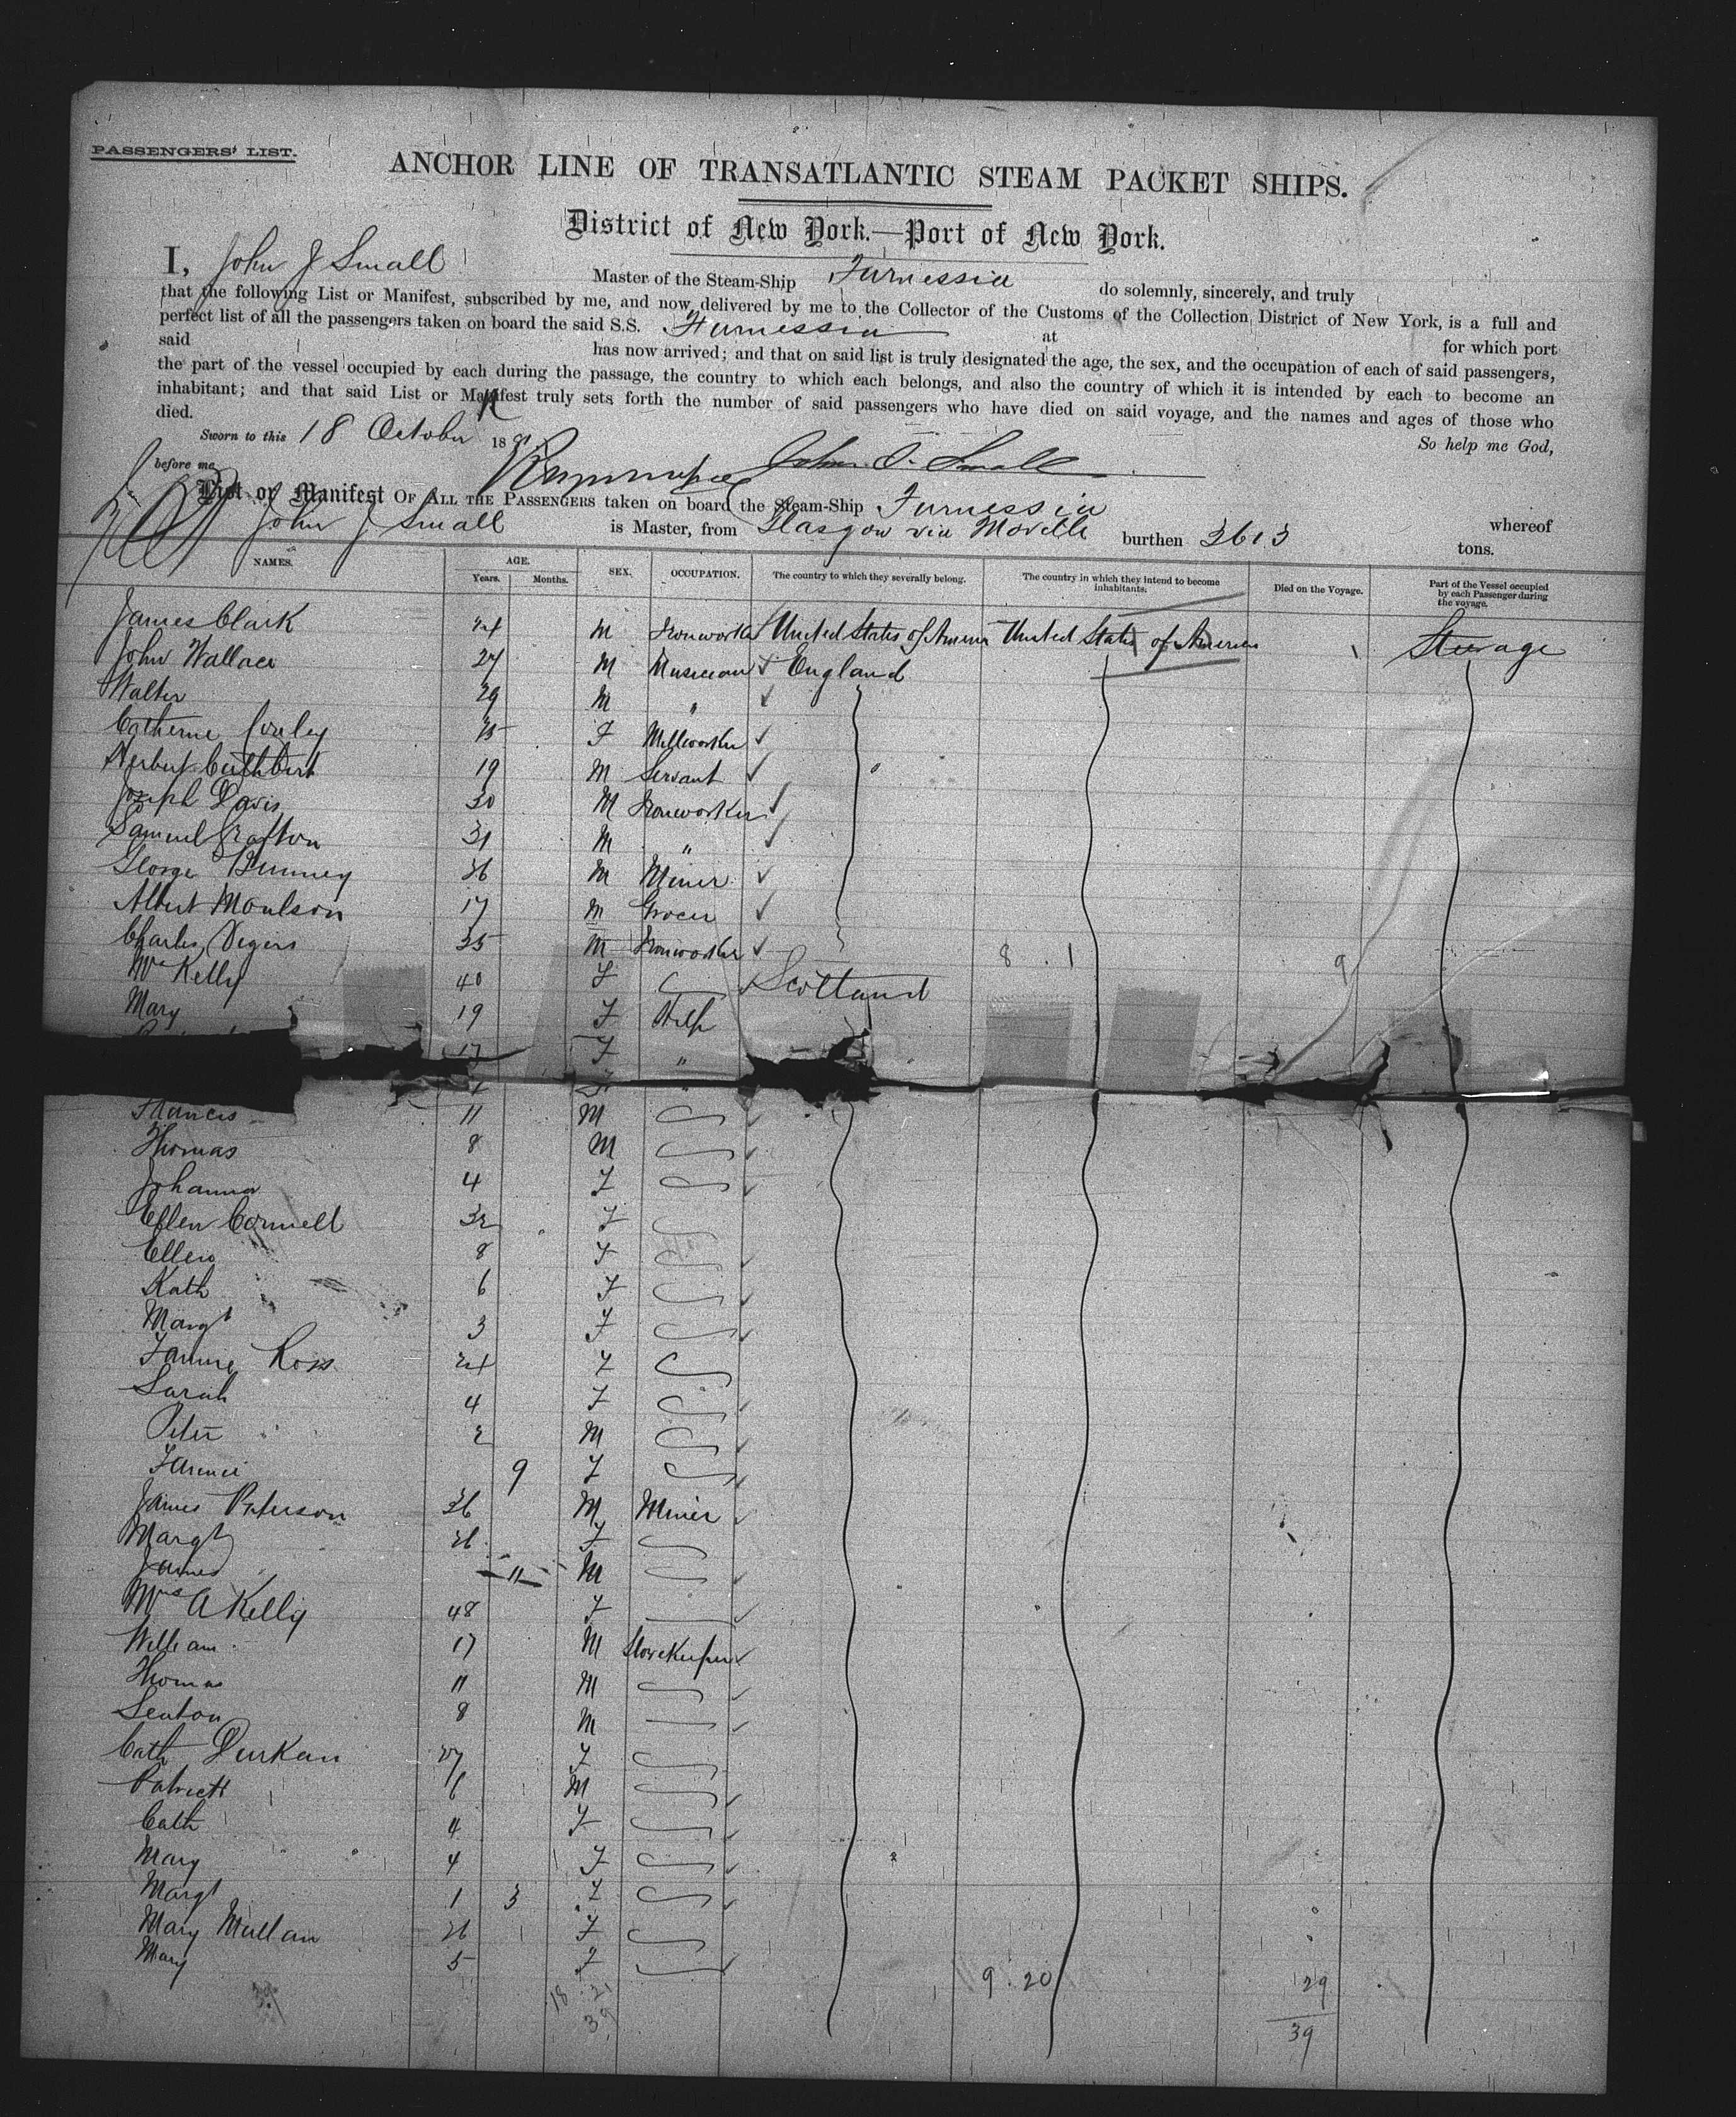 PASSENGERS' LIST.
ANCHOR LINE OF TRANSATLANTIC STEAM PACKET SHIPS.
District of New York.—Port of New York.
I, John J Small Master of the Steam-Ship Furnessia do solemnly, sincerely, and truly
that the following List or Manifest, subscribed by me, and now delivered by me to the Collector of the Customs of the Collection District of New York, is a full and
perfect list of all the passengers taken on board the said S.S. Furnessia at
said has now arrived; and that on said list is truly designated the age, the sex, and the occupation of each of said passengers, for which port
the part of the vessel occupied by each during the passage, the country to which each belongs, and also the country of which it is intended by each to become an
inhabitant; and that said List or Manifest truly sets forth the number of said passengers who have died on said voyage, and the names and ages of those who
died.
Sworn to this 18 October 18 So help me God,
before me John J. Small
List or Manifest OF ALL THE PASSENGERS taken on board the Steam-Ship Furnessia whereof
John J Small is Master, from Glasgow via Moville burthen 3613 tons.
NAMES. AGE. Years. Months. SEX. OCCUPATION. The country to which they severally belong. The country in which they intend to become inhabitants. Died on the Voyage. Part of the Vessel occupied by each Passenger during the voyage.
James Clark 24 M Ironworker United States of America United States of America Steerage
John Wallace 27 M Musician England
Walter 29 M "
Catherine F Millworker
Herbert Cuthbert 19 M Servant
Joseph Davis 30 M Ironworker
Samuel Grafton 31 M "
George 36 M Miner
Albert Moulson 17 M Grocer
Charles 35 M Ironworker 8 1 9
Kelly 40 F Scotland
Mary 19 F Help
17 F "
F "
Francis 11 M
Thomas 8 M
Johanna 4 F
Ellen Connell 32 F
Ellen 8 F
Kath 6 F
Margt 3 F
Ross 24 F
Sarah 4 F
Peter 2 M
9 F
James Peterson 36 M Miner
Margt 26 F
James 11 M
Mrs A Kelly 48 F
William 17 M Storekeeper
Thomas 11 M
Senton 8 M
Cath Durkan 27 F
Patrick 6 M
Cath 4 F
Mary 4 F
Margt 1 3 F
Mary Mullan 26 F
Mary 5 F
9 . 20 29
18 . 21
39 39